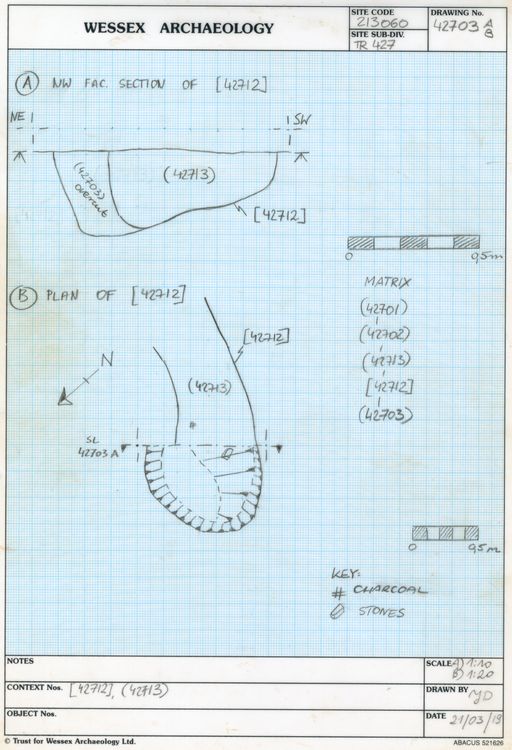 WESSEX ARCHAEOLOGY
SITE CODE
213060
SITE SUB-DIV.
TR 427
DRAWING No.
42703 A
B
A NW FAC. SECTION OF [42712]
NE
SW
(42703)
overcut
(42713)
[42712]
0 0,5m
B PLAN OF [42712]
MATRIX
(42701)
(42702)
(42713)
[42712]
(42703)
[42712]
N
(42713)
SL
42703 A
0 0,5m
KEY:
# CHARCOAL
STONES
NOTES
SCALE A) 1:10
B) 1:20
CONTEXT Nos. [42712], (42713)
DRAWN BY
OBJECT Nos.
DATE 21/03/19
© Trust for Wessex Archaeology Ltd.
ABACUS 521626